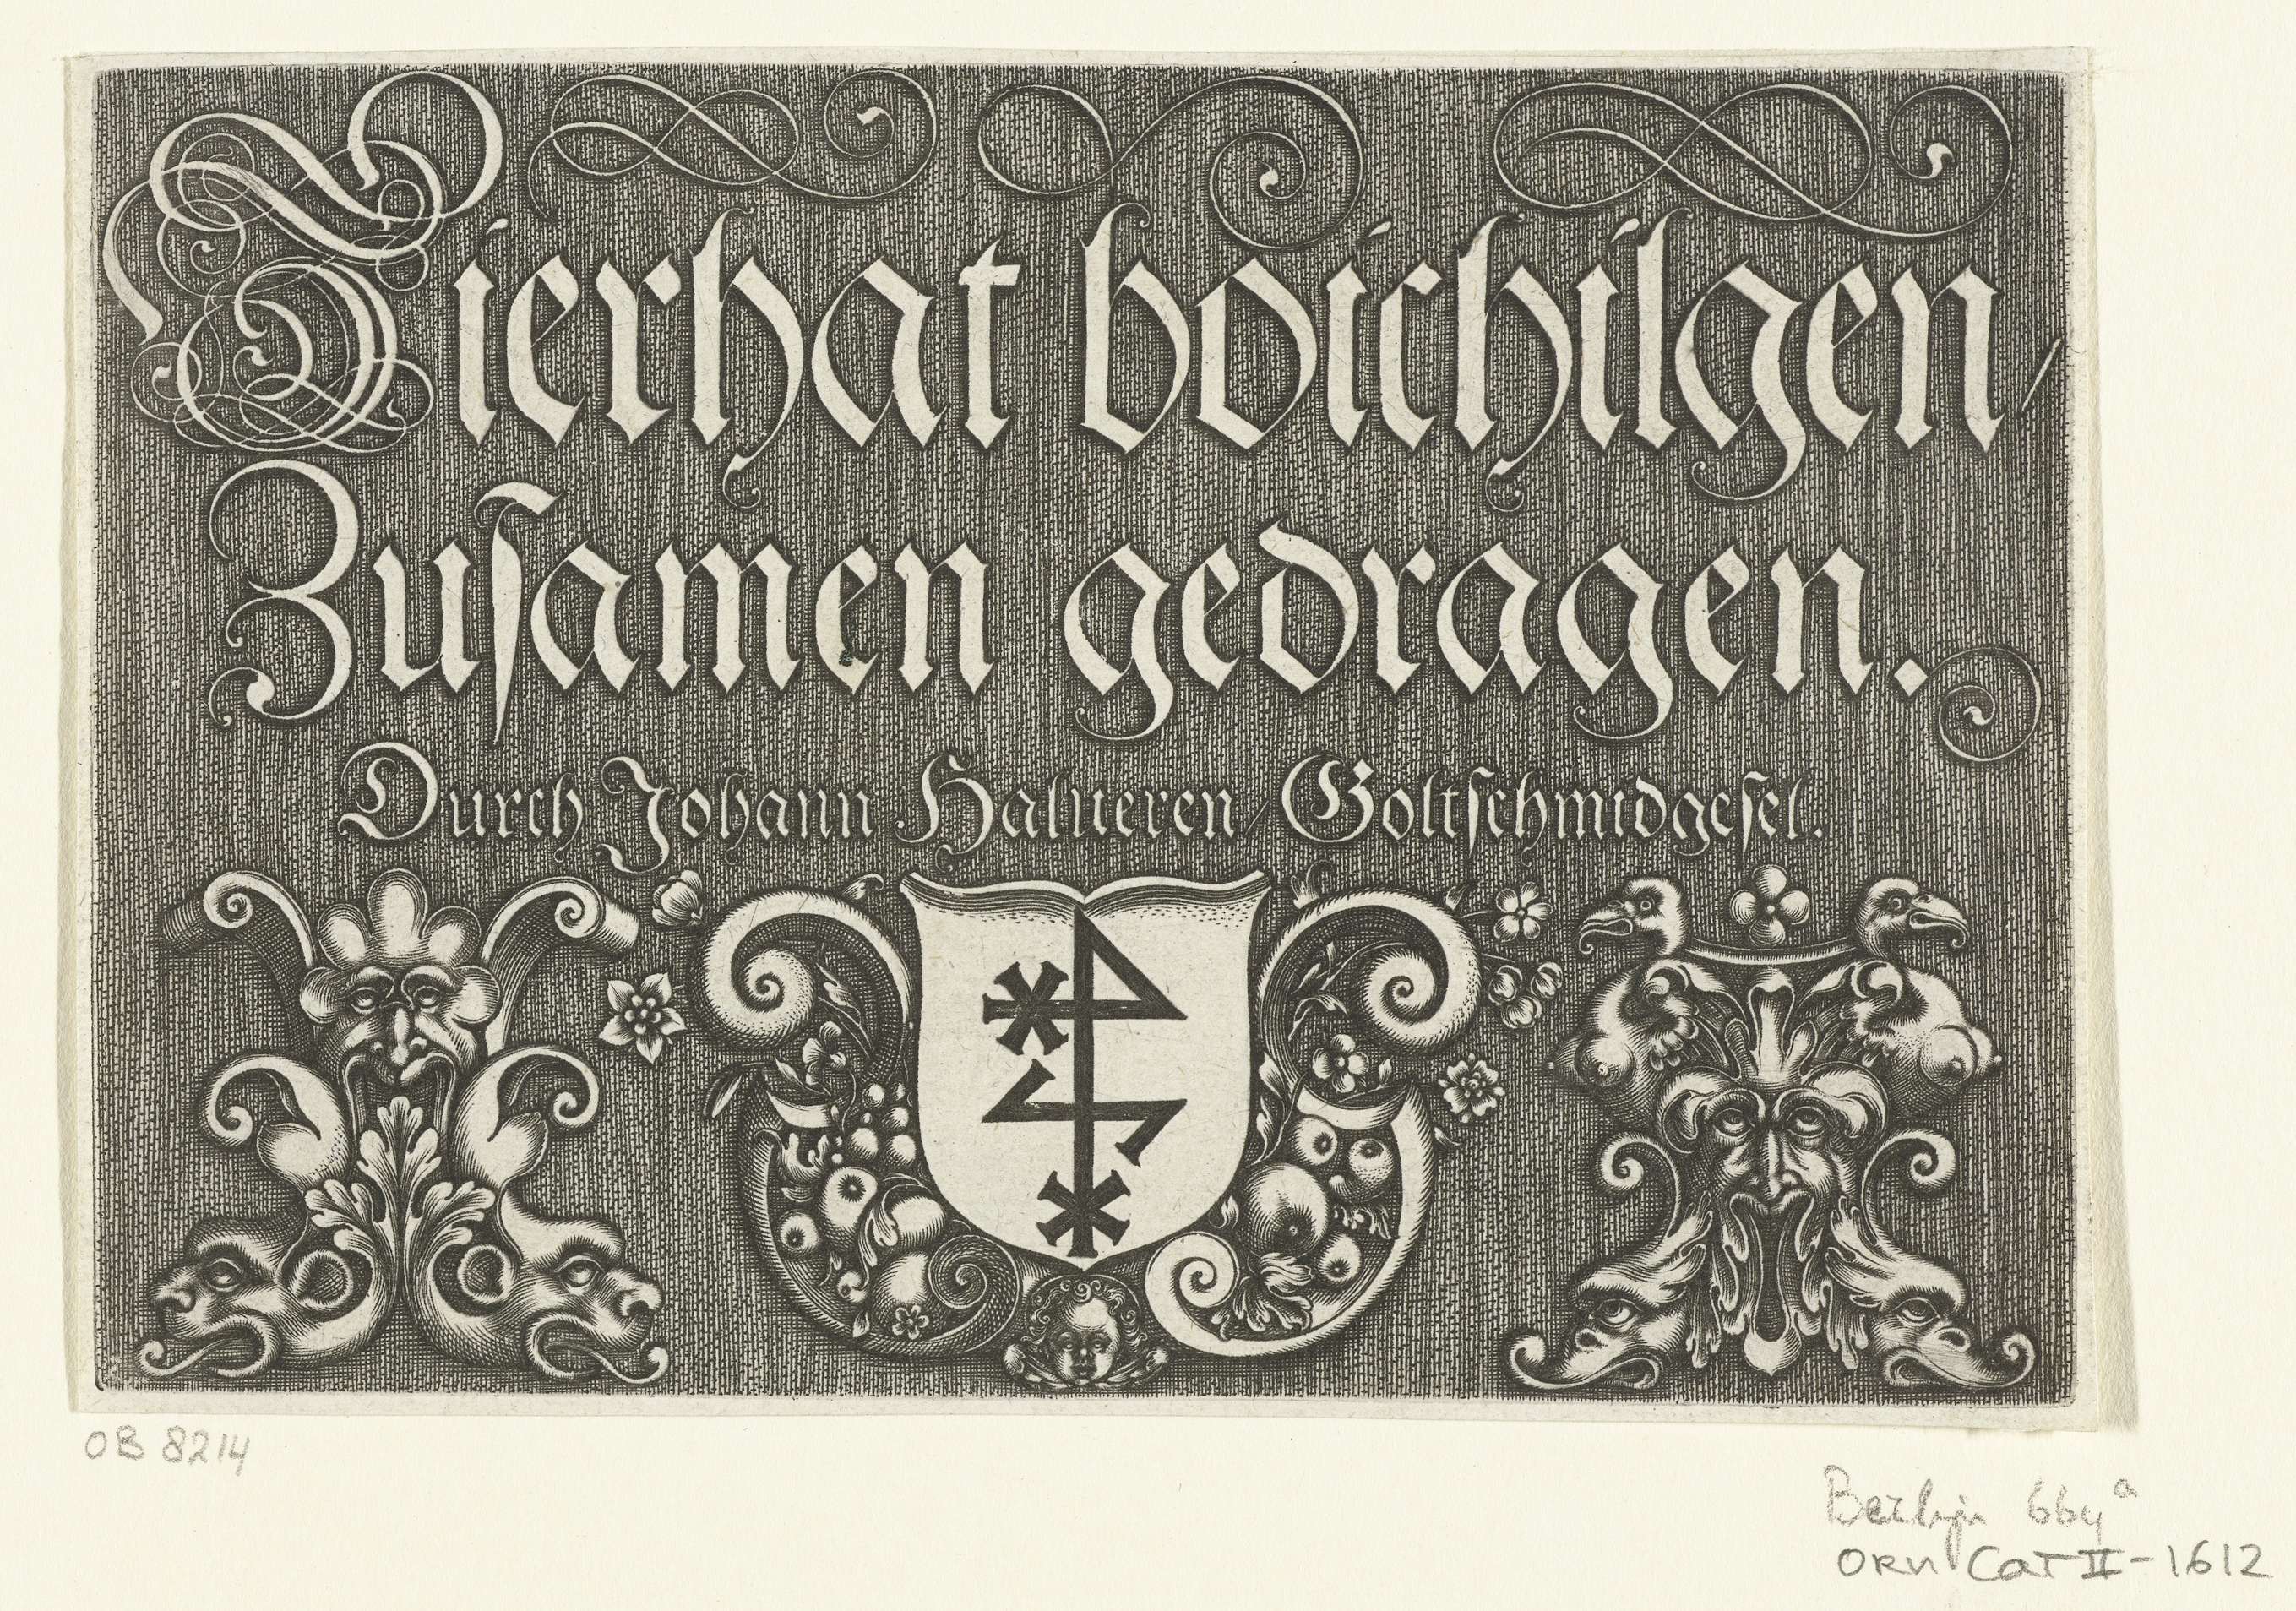 Zierhat boichilgen/
Zuſamen gedragen.
Durch Johann Halueren/ Goltſchmidgeſel.
OB 8214
Berlijn 664 a
ORN Cat II-1612